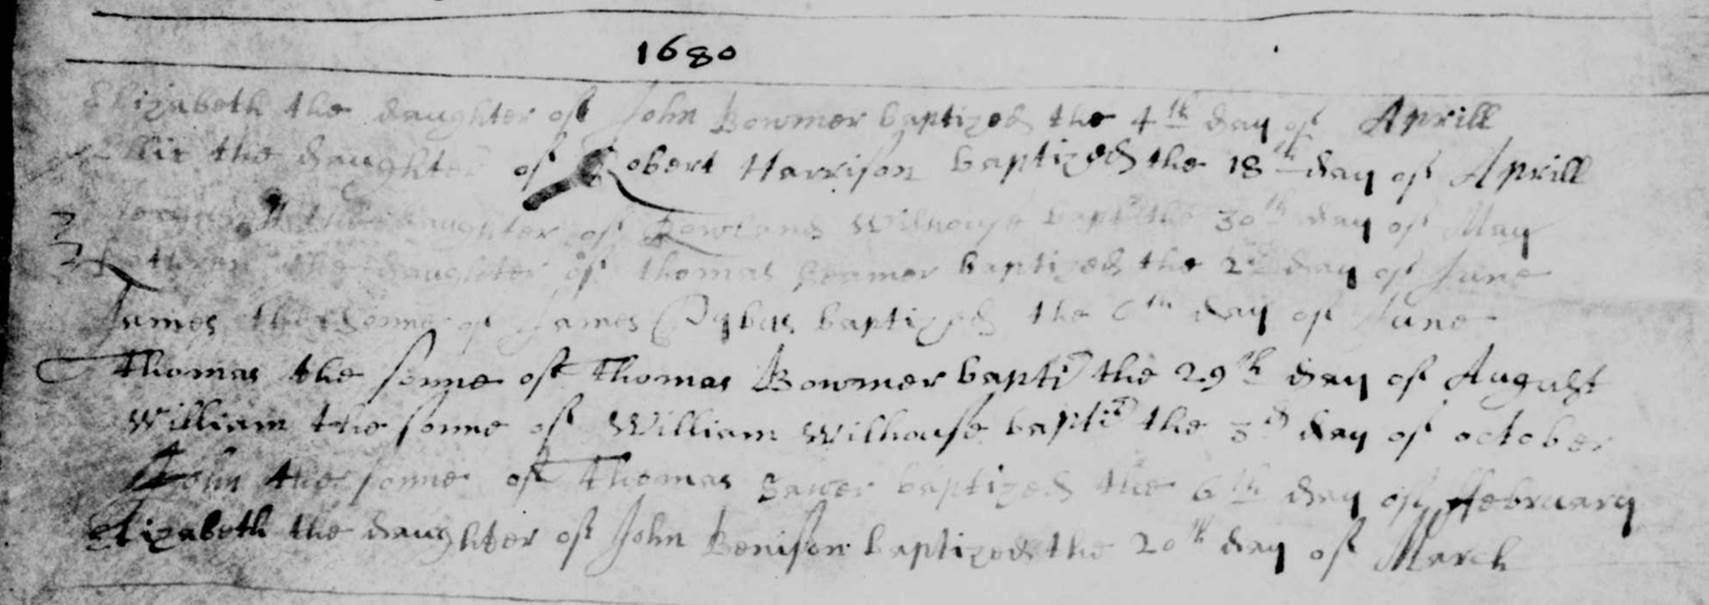 1680
Elizabeth the daughter of John Bowmer baptized the 4th day of Aprill
the daughter of Robert Harrison baptized the 18th day of Aprill
the daughter of Rowland Wilhouse bapt the 30th day of May
the daughter of Thomas baptized the 2d day of June
James the sonne of James Pybus baptized the 6th day of June
Thomas the sonne of Thomas Bowmer bapti the 29th day of August
William the sonne of William Wilhouse bapti the 3d day of october
John the sonne of Thomas Sawer baptized the 6th day of ffebruary
Elizabeth the daughter of John Benison baptized the 20th day of March